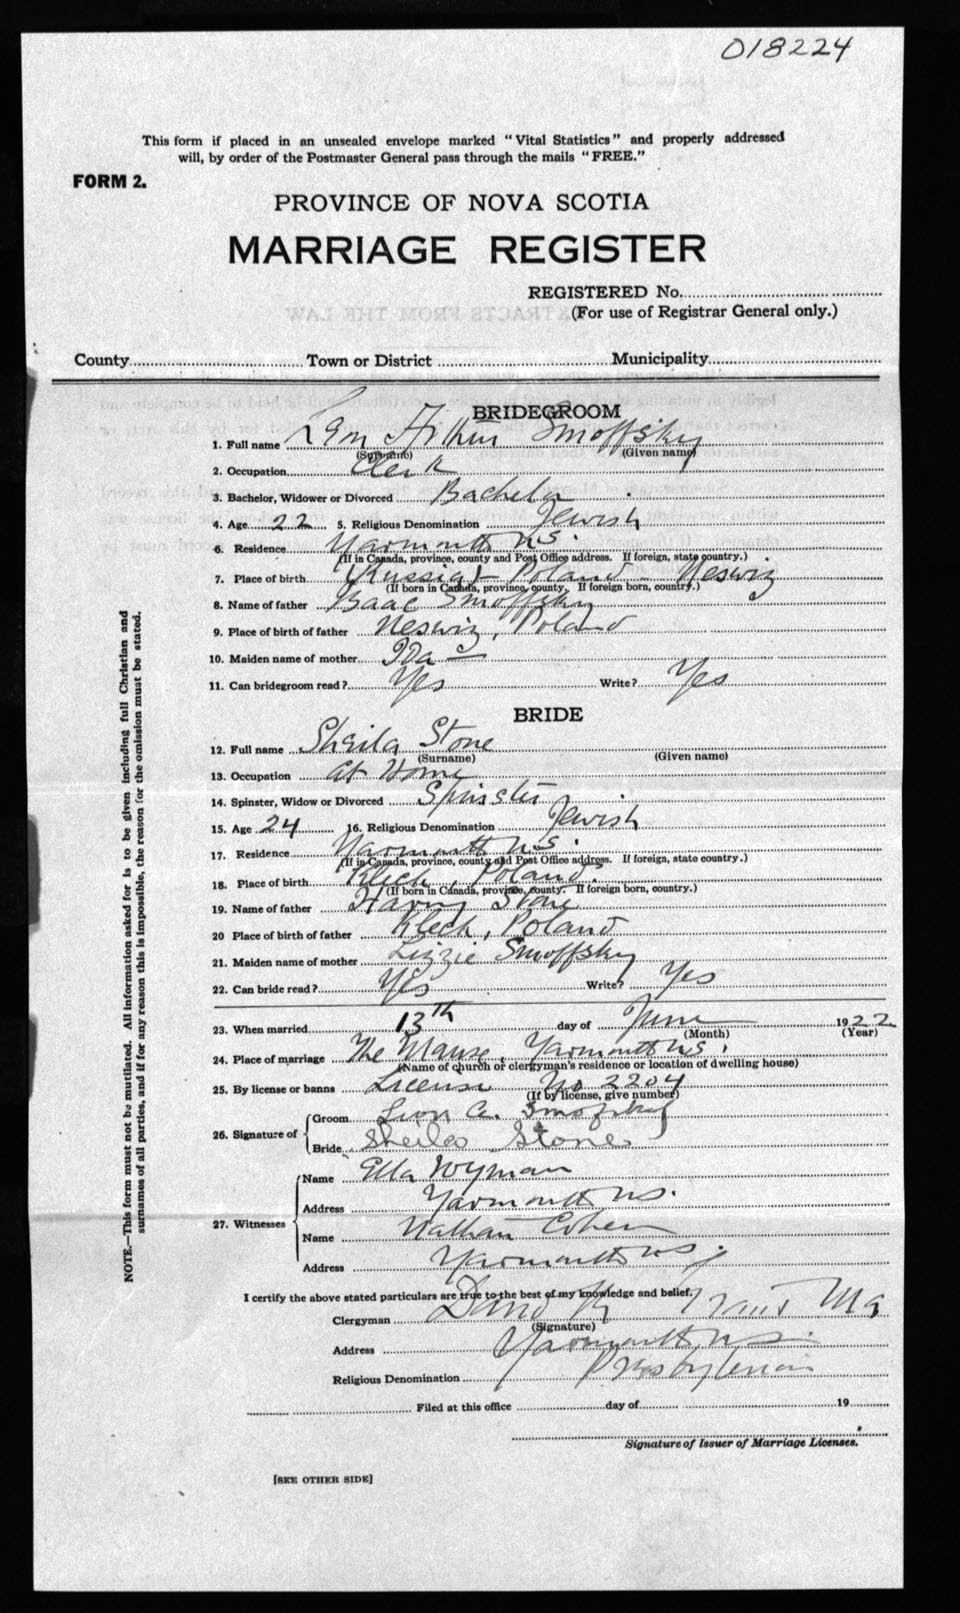 018224
This form if placed in an unsealed envelope marked "Vital Statistics" and properly addressed
will, by order of the Postmaster General pass through the mails "FREE."
FORM 2.
PROVINCE OF NOVA SCOTIA
MARRIAGE REGISTER
REGISTERED No.
(For use of Registrar General only.)
County Town or District Municipality
BRIDEGROOM
1. Full name Smoffsky
(Surname) (Given name)
2. Occupation Clerk
3. Bachelor, Widower or Divorced Bachelor
4. Age 22 5. Religious Denomination Jewish
6. Residence Yarmouth N.S.
(If in Canada, province, county and Post Office address. If foreign, state country.)
7. Place of birth (Russia) Poland - Neswiz
(If born in Canada, province, county. If foreign born, country.)
8. Name of father Isaac Smoffsky
9. Place of birth of father Neswiz, Poland
10. Maiden name of mother Ida —
11. Can bridegroom read? Yes Write? Yes
BRIDE
12. Full name Sheila Stone
(Surname) (Given name)
13. Occupation At Home
14. Spinster, Widow or Divorced Spinster
15. Age 24 16. Religious Denomination Jewish
17. Residence Yarmouth N.S.
(If in Canada, province, county and Post Office address. If foreign, state country.)
18. Place of birth Kleck, Poland.
(If born in Canada, province, county. If foreign born, country.)
19. Name of father Harry Stone
20 Place of birth of father Kleck, Poland
21. Maiden name of mother Lizzie Smoffsky
22. Can bride read? Yes Write? Yes
23. When married 13th day of June 1922
(Month) (Year)
24. Place of marriage The Manse, Yarmouth N.S.
(Name of church or clergyman's residence or location of dwelling house)
25. By license or banns License No 2204
(If by license, give number)
26. Signature of
Groom Leon A. Smofsky
Bride Sheila Stone
27. Witnesses
Name Ella Wyman
Address Yarmouth N.S.
Name Nathan Cohen
Address Yarmouth N.S.
I certify the above stated particulars are true to the best of my knowledge and belief.
Clergyman David K
(Signature)
Address Yarmouth N.S.
Religious Denomination Presbyterian
Filed at this office day of 19
Signature of Issuer of Marriage Licenses.
[SEE OTHER SIDE]
NOTE.—This form must not be mutilated. All information asked for is to be given including full Christian and
surnames of all parties, and if for any reason this is impossible, the reason for the omission must be stated.